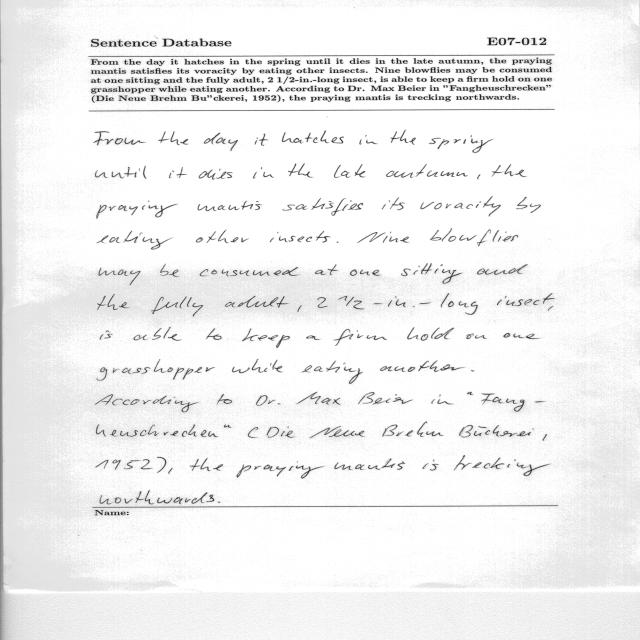 Sentence Database E07-012
From the day it hatches in the spring until it dies in the late autumn, the praying
mantis satisfies its voracity by eating other insects. Nine blowflies may be consumed
at one sitting and the fully adult, 2 1/2-in.-long insect, is able to keep a firm hold on one
grasshopper while eating another. According to Dr. Max Beier in "Fangheuschrecken"
(Die Neue Brehm Bu"ckerei, 1952), the praying mantis is trecking northwards.
From the day it hatches in the spring
until it dies in the late autumn, the
praying mantis satisfies its voracity by
eating other insects. Nine blowflies
may be consumed at one sitting and
the fully adult, 2 1/2-in.-long insect,
is able to keep a firm hold on one
grasshopper while eating another.
According to Dr. Max Beier in "Fang-
heuschrecken" (Die Neue Brehm Bücherei,
1952), the praying mantis is trecking
northwards.
Name: